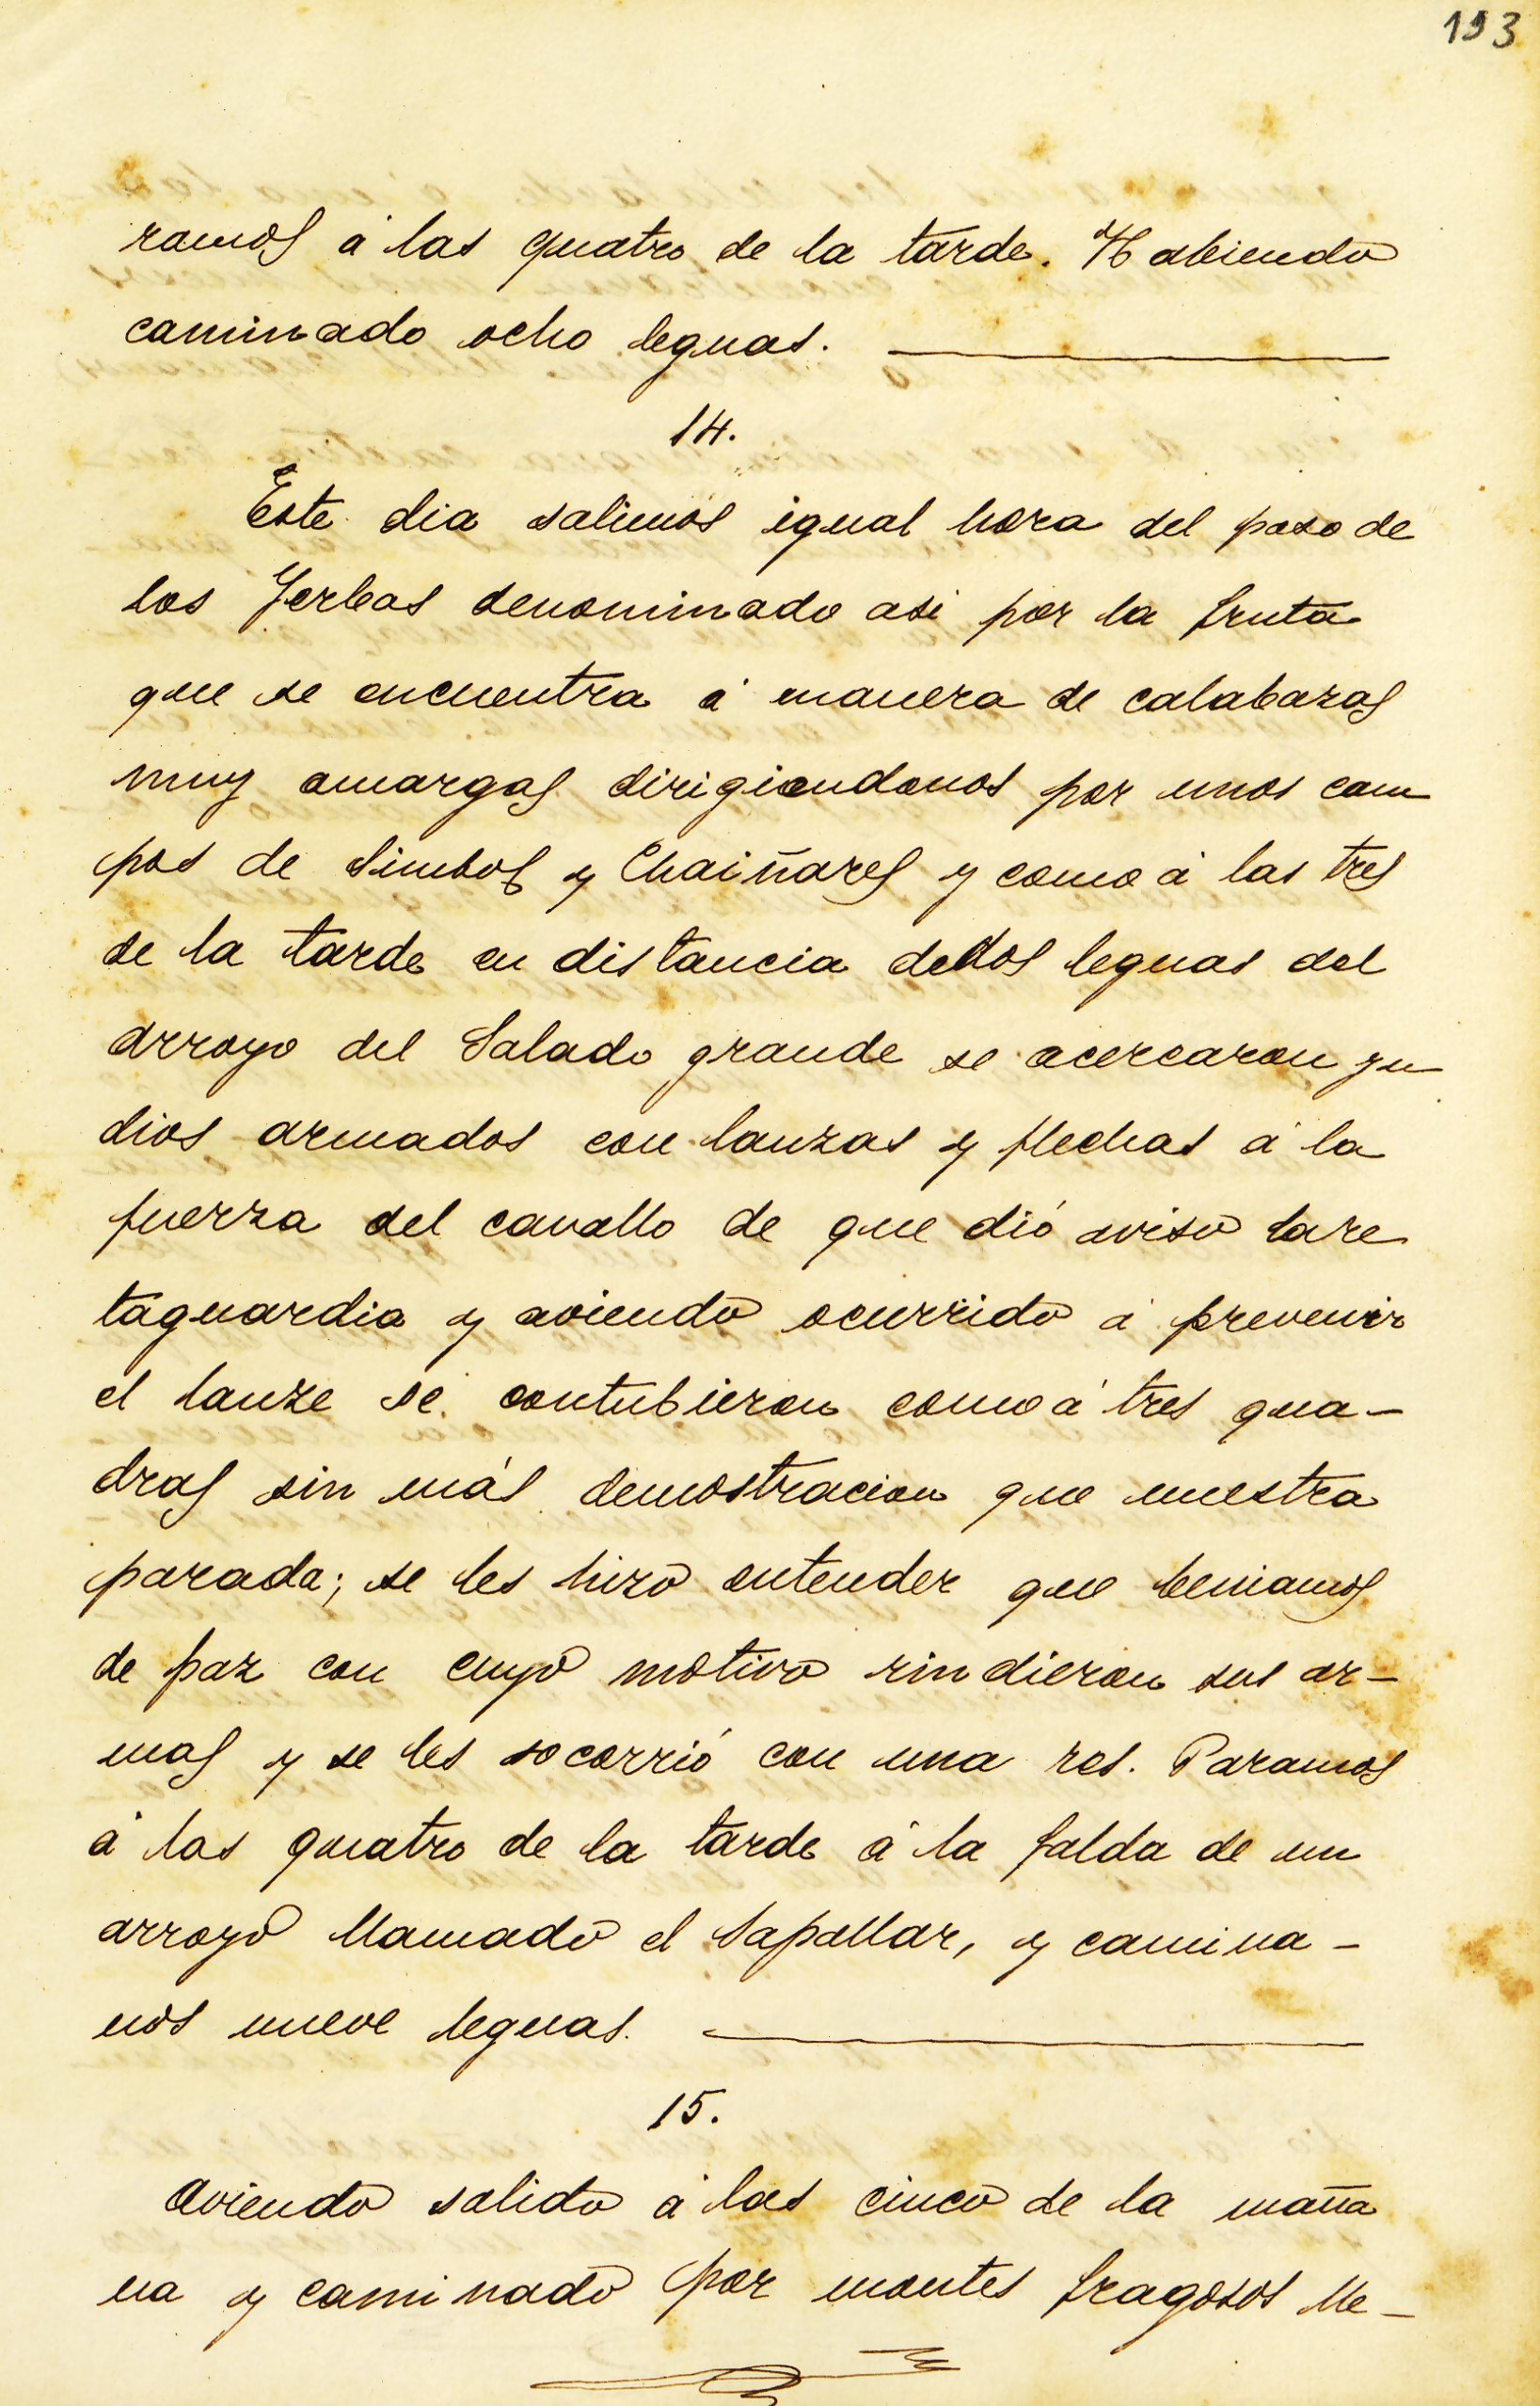 193
ramos á las quatro de la tarde. Habiendo
caminado ocho leguas.
14.
Este dia salimos igual hora del paso de
los Yerbas denominado asi por la fruta
que se encuentra á manera de calabazas
muy amargas dirigiendonos por unos cam
pos de Simbol y Chaiñares y como á las tres
de la tarde en distancia de dos leguas del
arroyo del Salado grande se acercaron yn
dios armados con lanzas y flechas á la
fuerza del cavallo de que dió aviso la re
taguardia y aviendo ocurrido á prevenir
el lanze se contubieron como á tres qua-
dras sin más demostracion que nuestra
parada; se les hizo entender que beniamos
de paz con cuyo motivo rindieron sus ar-
mas y se les socorrió con una res. Paramos
á las quatro de la tarde á la falda de un
arroyo llamado el Sapallar, y camina-
nos nueve leguas.
15.
Aviendo salido á las cinco de la maña
na y caminado por montes fragosos lle-